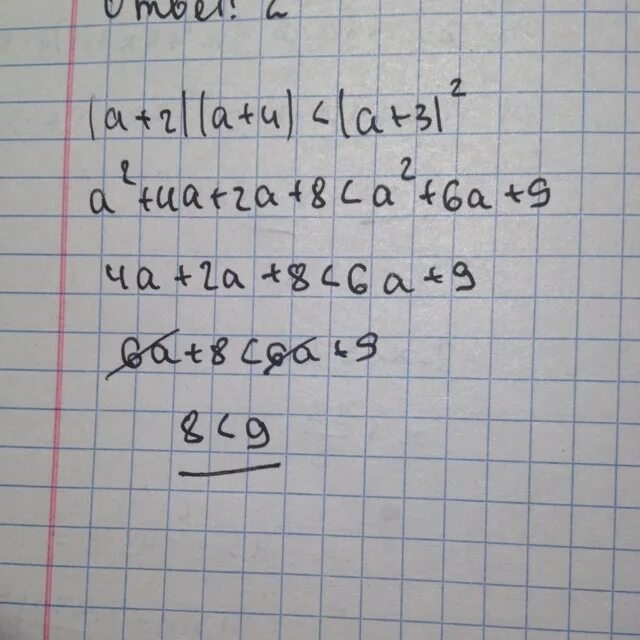 Ответ: 2
(a+2)(a+4)<(a+3)²
a²+4a+2a+8<a²+6a+9
4a+2a+8<6a+9
6a+8<6a+9
8<9